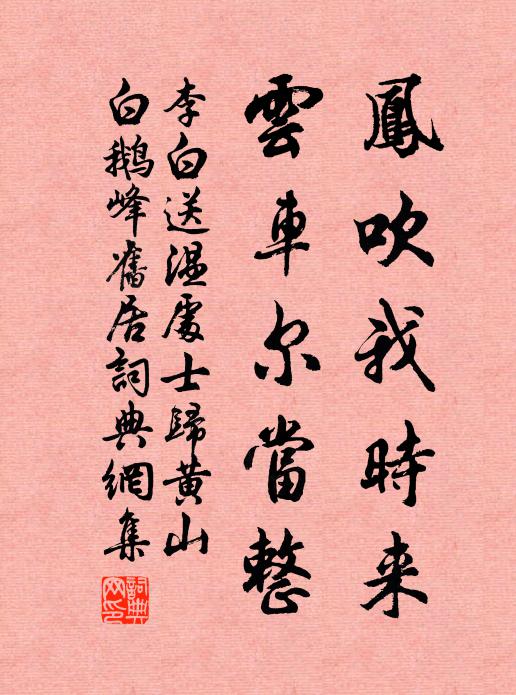 鳳吹我時来
雲車尔當整
李白送温處士歸黄山
白鵝峰舊居詞典網集
詞典网印